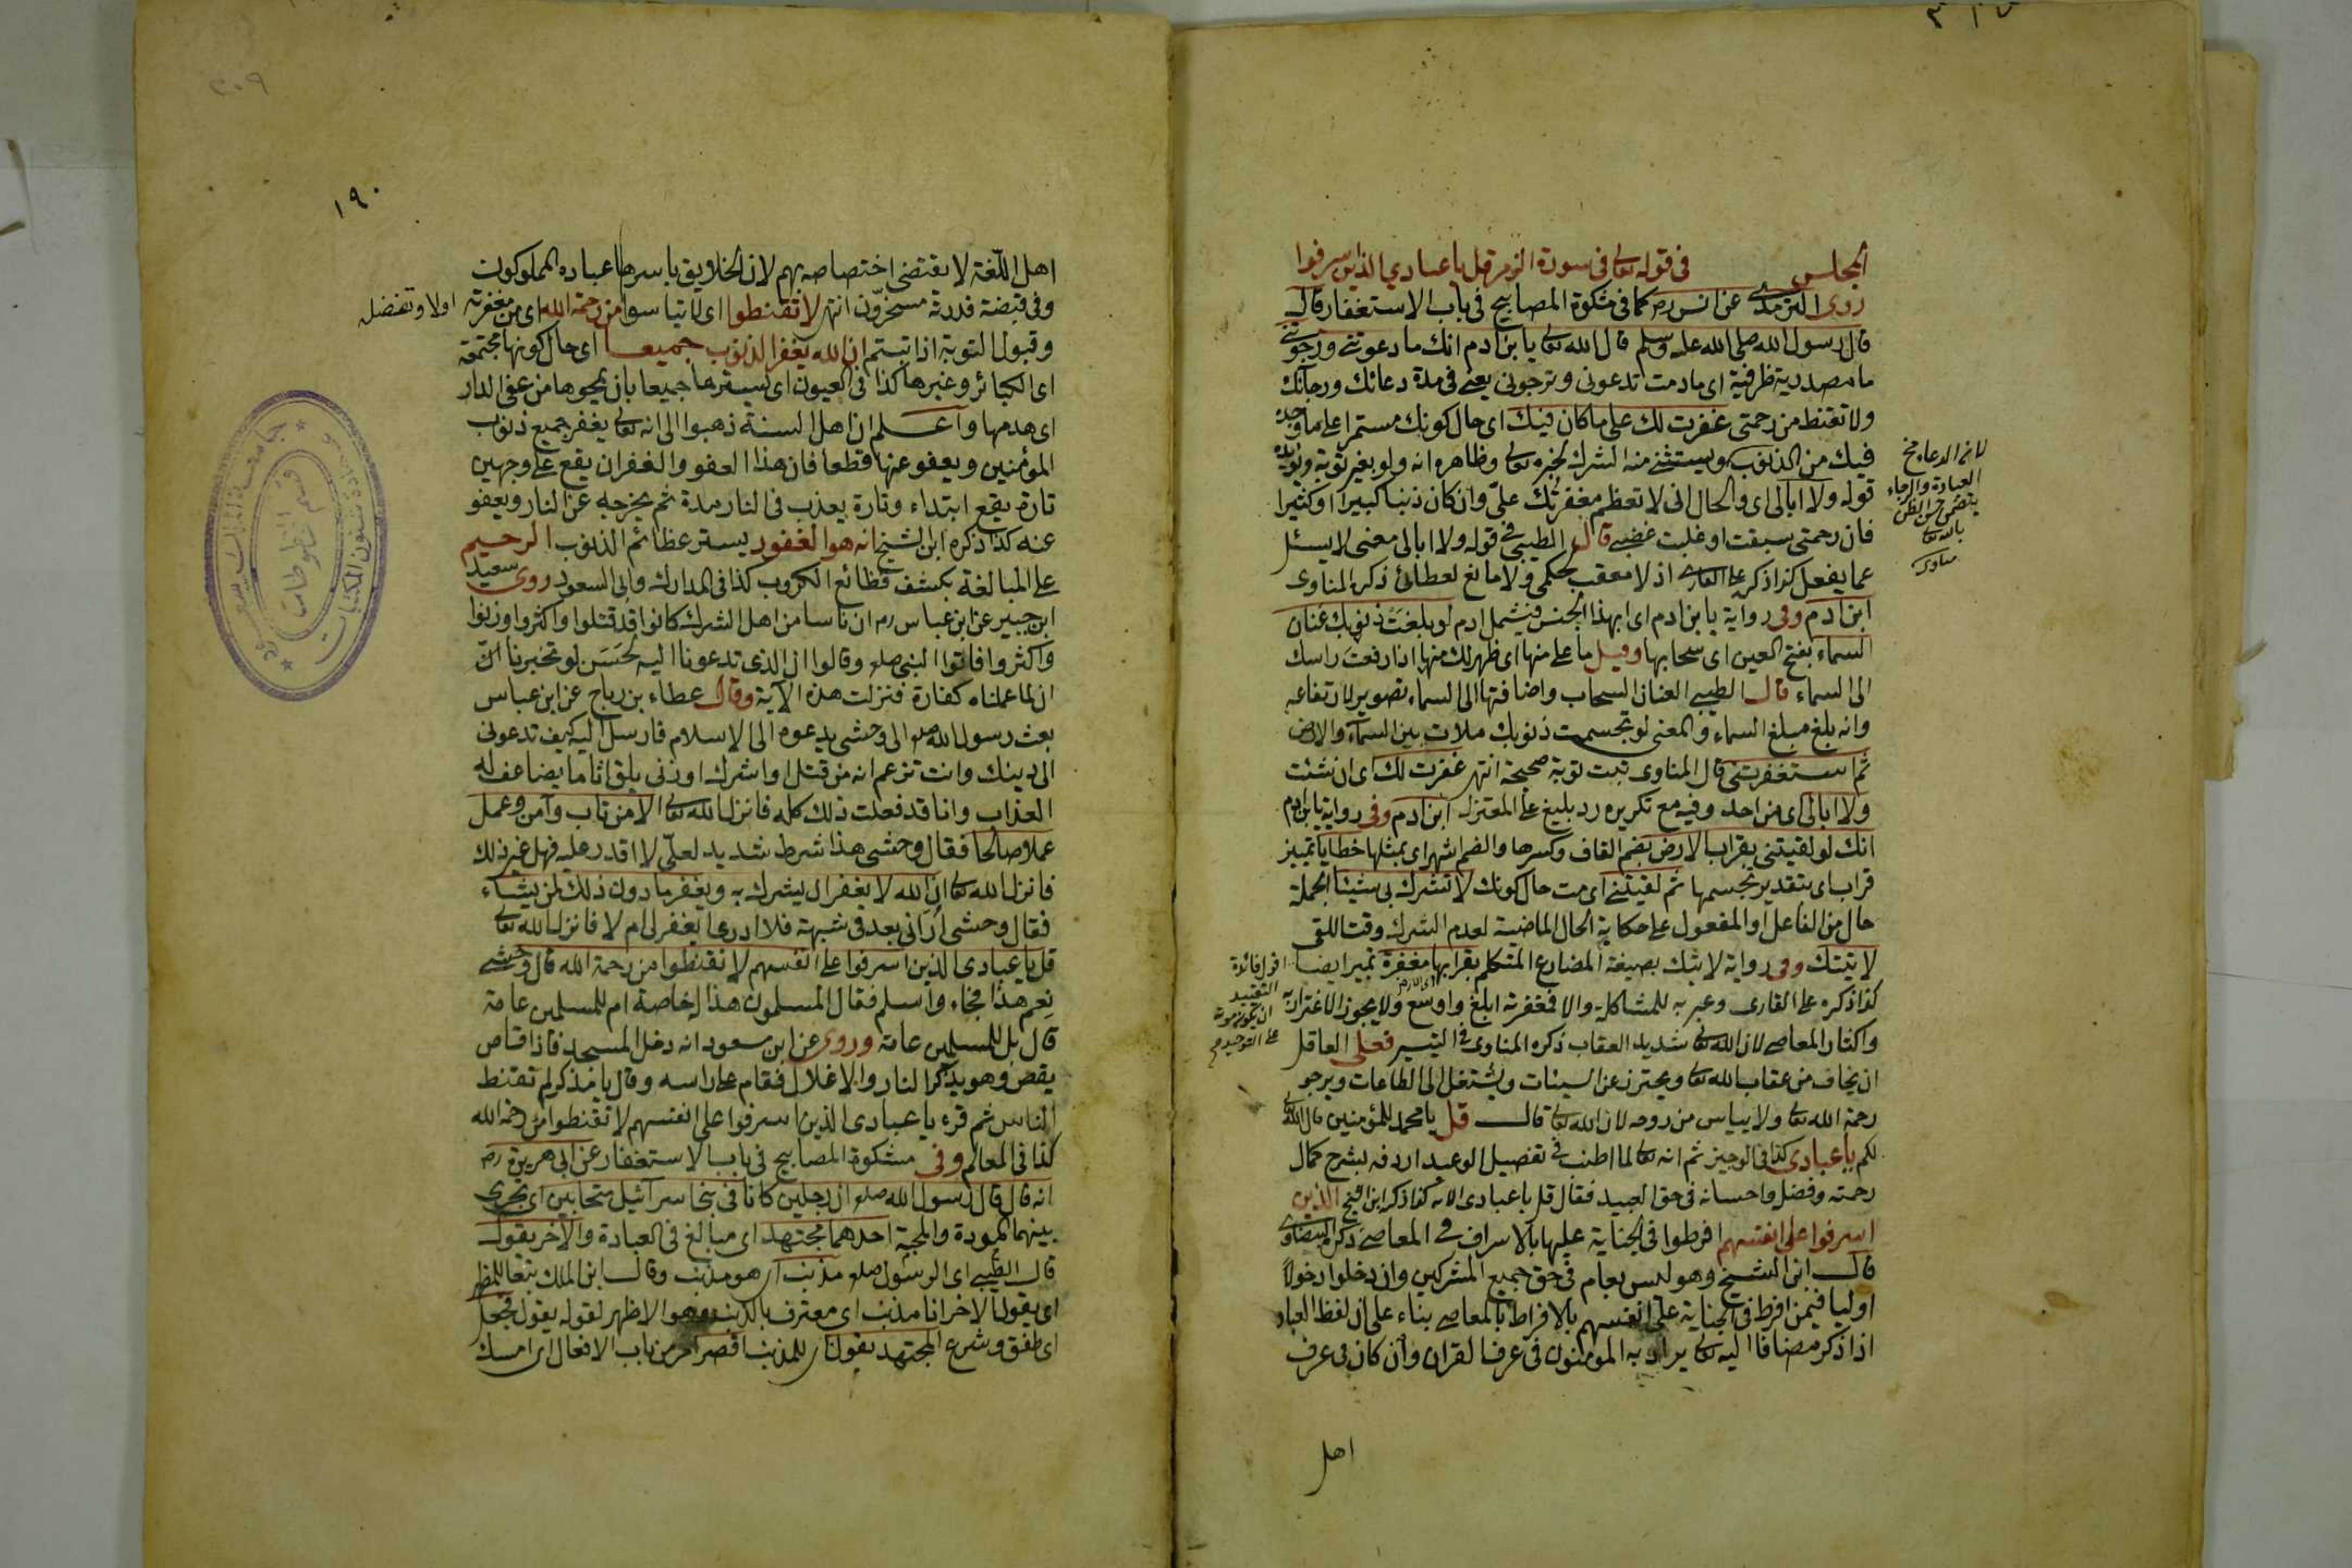 المجلس في قوله تعالى في سورة الزمر قل يا عبادي الذين اسرفوا
روى الترمذي عن انس رضه كما في مشكوة المصابيح في باب الاستغفار قال
قال رسول الله صلى الله عليه وسلم قال الله تعالى يا بن ادم انك ما دعوتني ورجوتني
ما مصدرية ظرفية اى ما دمت تدعوني وترجوني يعني في مدة دعائك ورجآئك
ولا تقنط من رحمتي غفرت لك على ما كان فيك اى حال كونك مستمرا على ما وجد
فيك من الذنوب ويستثنى منه الشرك لخبره تعالى وظاهره انه ولو بغير توبة ويؤيده
قوله ولا ابالى اى والحال انى لا تعظم مغفرتك علىّ وان كان ذنبا كبيرا او كثيرا
فان رحمتى سبقت او غلبت غضبي قال الطيبي في قوله ولا ابالى معنى لا يسئل
عما يفعل كذا ذكره على القارى اذ لا معقب لحكمى ولا مانع لعطائى ذكره المناوى
ابن ادم وفى رواية يا بن ادم اى ابهذا الجنس فيشمل ادم لو بلغت ذنوبك عنان
السماء بفتح العين اى سحابها وقيل ما علا منها اى ظهر لك منها اذا رفعت راسك
الى السماء قال الطيبي العنان السحاب واضافتها الى السماء تصوير لارتفاعه
وانه بلغ مبلغ السماء والمعنى لو تجسمت ذنوبك ملات بين السمآء والارض
ثم استغفرتنى قال المناوى تبت توبة صحيحة انتهى غفرت لك اى ان شئت
ولا ابالى اى من احد وفيه مع تكريره رد بليغ على المعتزلة ابن ادم وفى رواية يا بن ادم
انك لو لقيتنى بقراب الارض بضم القاف وكسرها والضم اشهر اى بمثلها خطايا تمييز
قراب اى بتقدير تجسمها ثم لقيتنى اى مت حال كونك لا تشرك بى شيئا الجملة
حال من الفاعل او المفعول على حكاية الحال الماضية لعدم الشرك وقت اللقى
لاتيتك وفى رواية لاتيك بصيغة المضارع المتكلم بقرابها مغفرة تمييز ايضا
كذا ذكره على القارى وعبر به للمشاكلة والا فمغفرته ابلغ واوسع ولا يجوز الاغترار به
واكثار المعاصى لان الله تعالى شديد العقاب ذكره المناوى فى التيسير فعلى العاقل
ان يخاف من عقاب الله تعالى ويحترز عن السيئات ويشتغل الى الطاعات ويرجو
رحمة الله تعالى ولا يياس من روحه لان الله تعالى قال قل يا محمد للمؤمنين قال الله تعالى
لكم يا عبادى كذا فى الوجيز ثم انه تعالى لما اطنب فى تفصيل الوعيد اردفه بشرح كمال
رحمته وفضله واحسانه فى حق العبيد فقال قل يا عبادى الاية كذا ذكره ابن الشيخ الذين
اسرفوا على انفسهم افرطوا فى الجناية عليها بالاسراف فى المعاصى ذكره البيضاوى
قال ابن الشيخ وهو ليس بعام فى حق جميع المشركين وان دخلوا دخولا
اوليا فيمن افرط فى الجناية على انفسهم بالافراط بالمعاصى بناء على ان لفظ العباد
اذا ذكر مضافا اليه تعالى يراد به المؤمنون فى عرف القران وان كان فى عرف
اهل
لان الدعا مخ
العبادة والرجاء
يتضمن حسن الظن
بالله تعالى
مناوى
التقييد
على التوحيد
١٩٠
اهل اللغة لا يقتضى اختصاصه بهم لان الخلايق باسرها عباده المملوكون
وفى قبضة قدرته مسخرون انتهى لا تقنطوا اى لا تياسوا من رحمة الله اى من مغفرته اولا وتفضله
وقبول التوبة اذا تبتم ان الله يغفر الذنوب جميعا اى حال كونها مجتمعة
اى الكبائر وغيرها كذا فى العيون اى يسترها جميعا بان يمحوها من عفى الدار
اى هدمها واعلم ان اهل السنة ذهبوا الى انه تعالى يغفر جميع ذنوب
المؤمنين ويعفو عنها قطعا فان هذا العفو والغفران يقع على وجهين
تارة يقع ابتداء وتارة يعذب فى النار مدة ثم يخرجه عن النار ويعفو
عنه كذا ذكره ابن الشيخ انه هو الغفور يستر عظائم الذنوب الرحيم
على المبالغة بكشف فظائع الكروب كذا فى المدارك وابى السعود روى سعيد
ابن جبير عن ابن عباس رضه ان ناسا من اهل الشرك كانوا قد قتلوا واكثروا وزنوا
واكثروا فاتوا النبى صلعم وقالوا ان الذى تدعونا اليه لحسن لو تخبرنا انّ
ان لما عملناه كفارة فنزلت هذه الآية وقال عطاء بن رباح عن ابن عباس
بعث رسول الله صلعم الى وحشى يدعوه الى الاسلام فارسل اليه كيف تدعونى
الى دينك وانت تزعم انه من قتل او اشرك او زنى يلق اثاما يضاعف له
العذاب وانا قد فعلت ذلك كله فانزل الله تعالى الا من تاب وآمن وعمل
عملا صالحا فقال وحشى هذا شرط شديد لعلّى لا اقدر عليه فهل غير ذلك
فانزل الله تعالى ان الله لا يغفر ان يشرك به ويغفر ما دون ذلك لمن يشاء
فقال وحشى ارانى بعد فى شبهة فلا ادرى ايغفر لى ام لا فانزل الله تعالى
قل يا عبادى الذين اسرفوا على انفسهم لا تقنطوا من رحمة الله قال وحشى
نعم هذا فجاء واسلم فقال المسلمون هذا له خاصة ام للمسلمين عامة
قال بل للمسلمين عامة وروى عن ابن مسعود انه دخل المسجد فاذا قاص
يقص وهو يذكر النار والاغلال فقام على راسه وقال يا مذكر لم تقنط
الناس ثم قرء يا عبادى الذين اسرفوا على انفسهم لا تقنطوا من رحمة الله
كذا فى المعالم وفى مشكوة المصابيح فى باب الاستغفار عن ابى هريرة رضه
انه قال قال رسول الله صلعم ان رجلين كانا فى بنى اسرآئيل متحابين اى يجرى
بينهما المودة والمحبة احدهما مجتهد اى مبالغ فى العبادة والآخر يقول
قال الطيبي اى الرسول صلعم مذنب اى هو مذنب وقال ابن الملك تبعا للمظهر
اى يقول الاخر انا مذنب اى معترف بالذنب وهو الاظهر لقوله يقول فجعل
اى طفق وشرع المجتهد يقول اى للمذنب اقصر امر من باب الافعال اى امسك
جامعة
قسم المخطوطات
شئون المكتبات